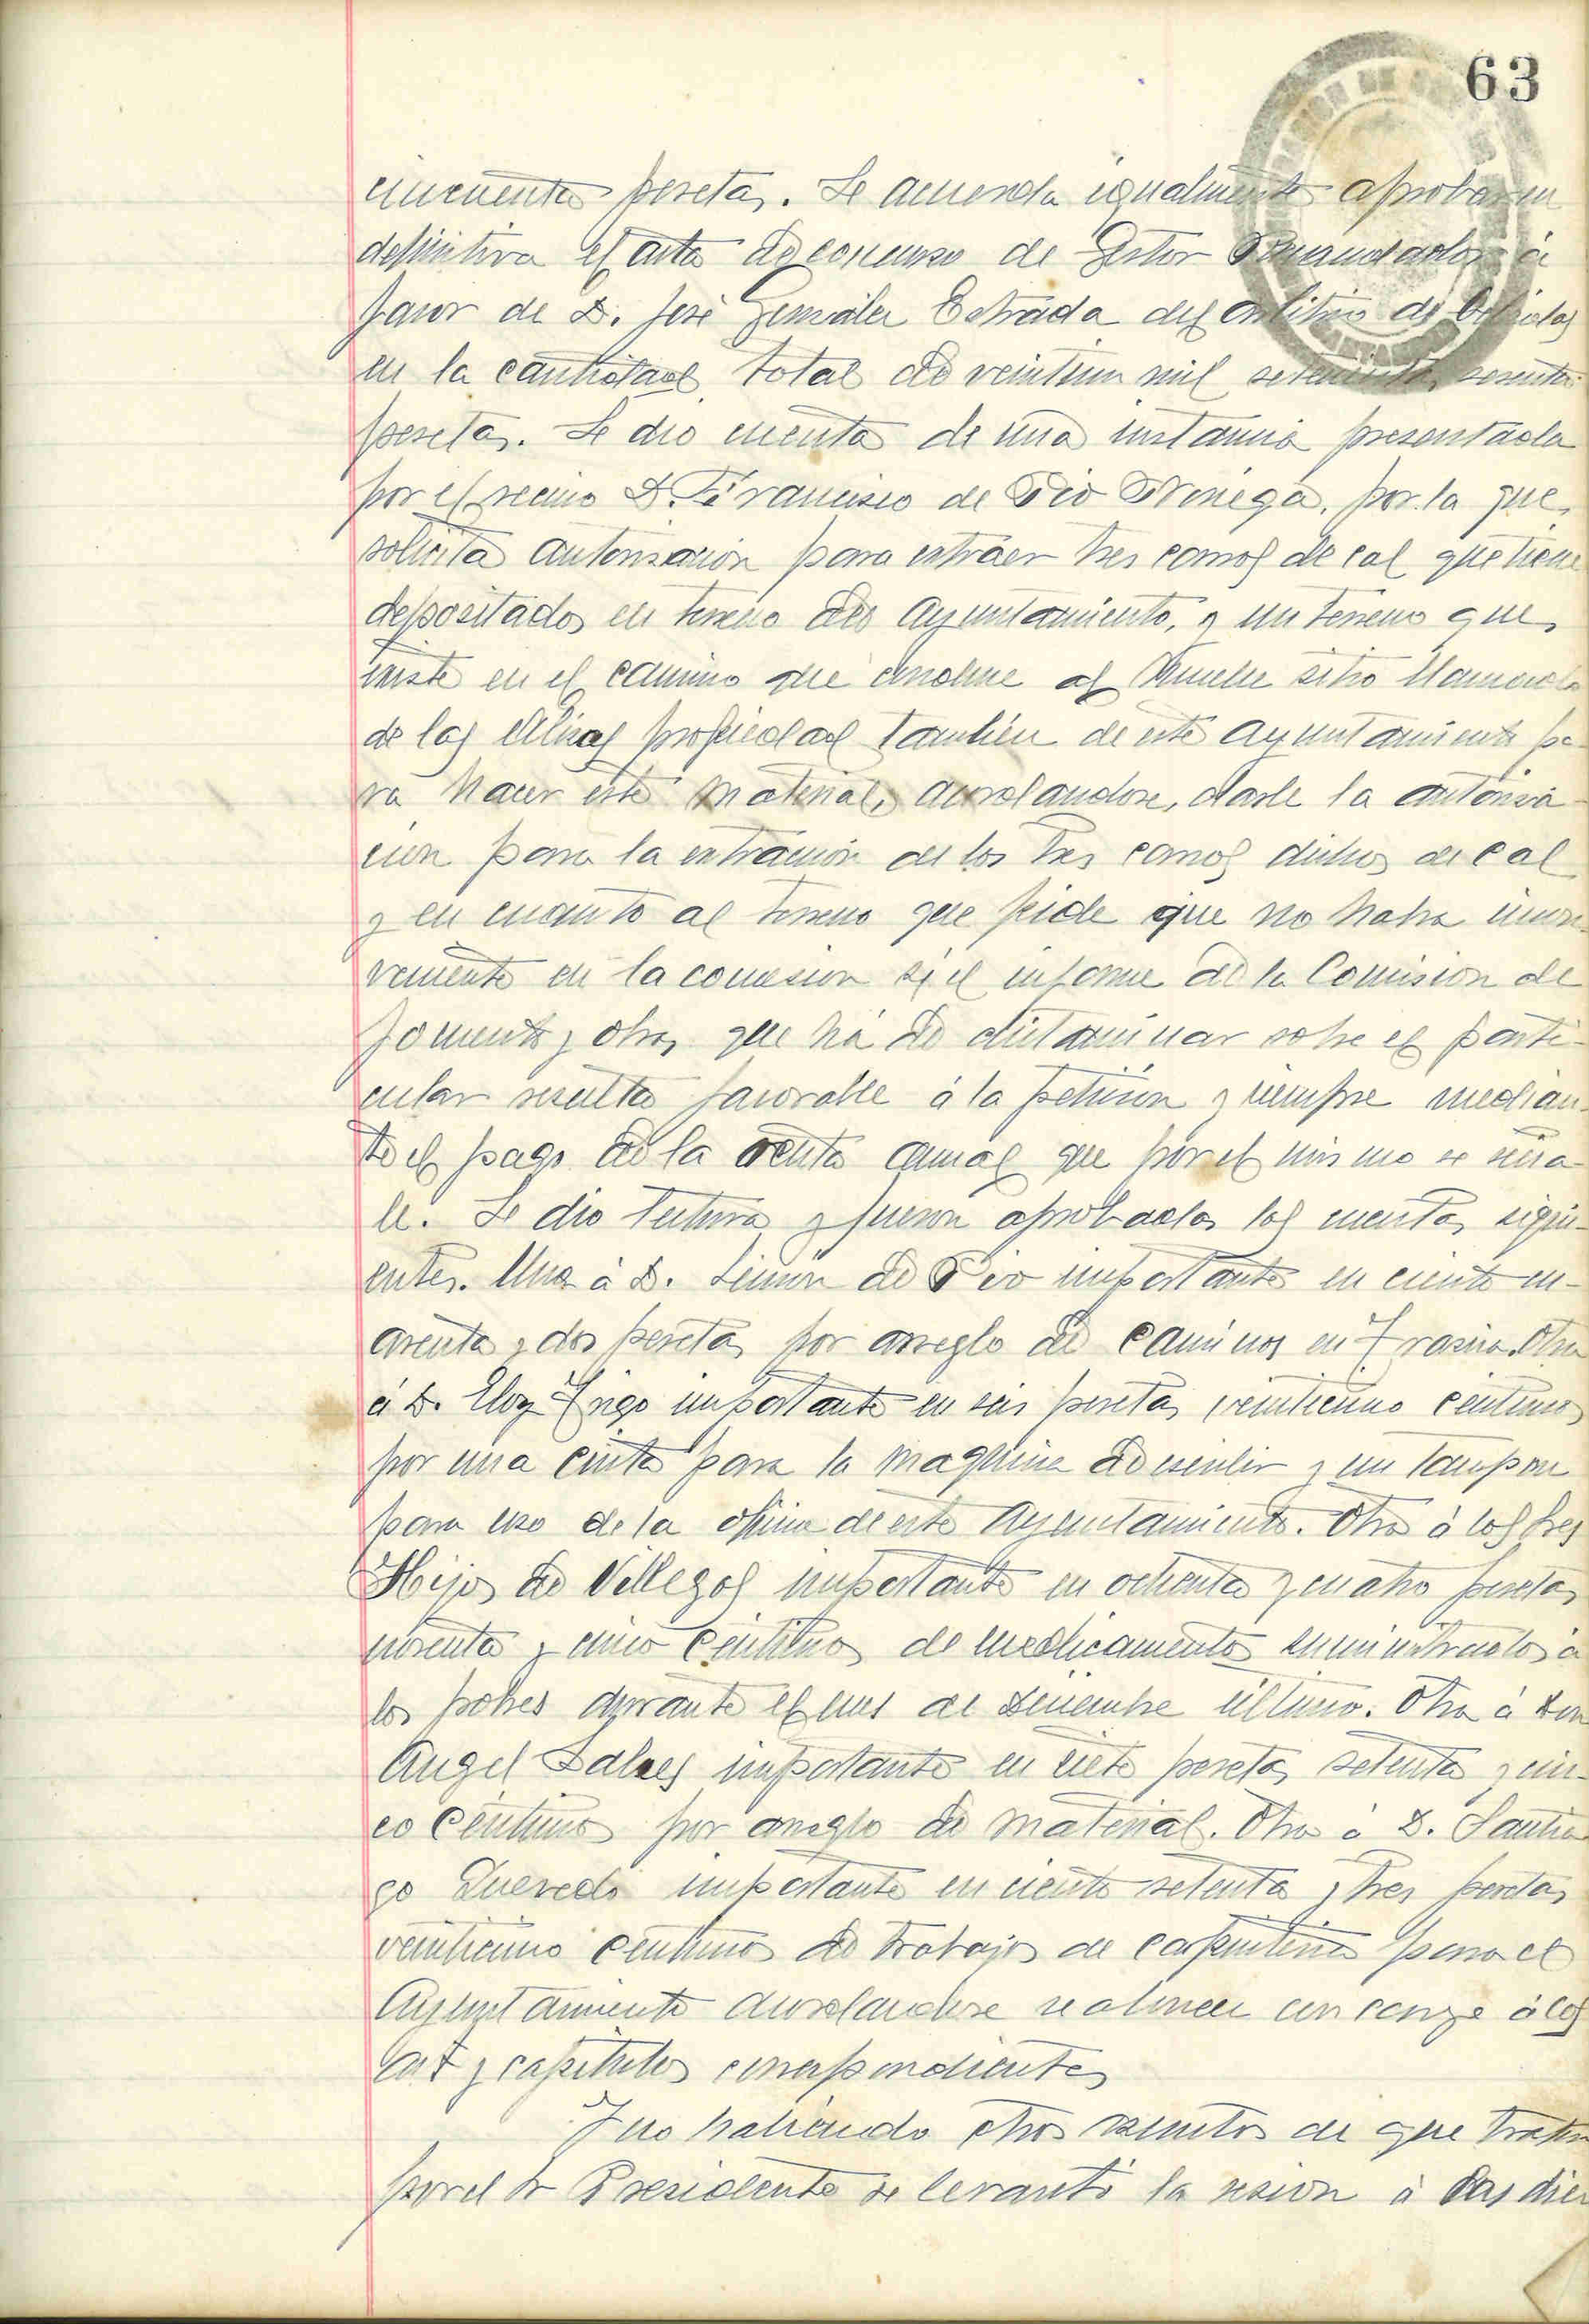 63
cincuenta pesetas. Se acuerda igualmente aprobar en
definitiva el acta de concurso de Gestor Recaudador á
favor de D. José González Estrada del arbitrio de bebidas
en la cantidad total de veintiun mil setecientas sesenta
pesetas. Se dio cuenta de una instancia presentada
por el vecino D. Francisco de Pio Noriega, por la que,
solicita autorisación para extraer tres carros de cal que tiene
depositados en terreno del Ayuntamiento, y un terreno que,
existe en el camino que conduce al Muelle sitio llamado
de las propiedad también de este Ayuntamiento pa-
ra hacer este material, acordandose, darle la autorisa-
cion para la extración de los tres carros dichos de cal
y en cuanto al terreno que pide que no habrá incon-
veniente en la concesion si el informe de la Comision de
Fomento y obras que há de dictaminar sobre el parti-
cular resulta favorable á la petición y siempre median-
te el pago de la renta anual que por el mismo se seña-
le. Se dio lectura y fueron aprobadas las cuentas sigui-
entes. Una á D. Simón de Pio importante en ciento cu-
arenta y dos pesetas por arreglo de caminos en Otra
á D. Eloy Inigo importante en seis pesetas veinticinco centimos
por una cinta para la maquina de escribir y un tampon
para uso de la oficina de este Ayuntamiento. Otra á los Sres
Hijos de Villegas importante en ochenta y cuatro pesetas
noventa y cinco centimos de medicamentos suministrados á
los pobres durante el mes de Diciembre último. Otra á Don
Angel Salces importante en siete pesetas setenta y cin-
co centimos por arreglo de material. Otra á D. Santia-
go Quevedo importante en ciento setenta y tres pesetas
veinticinco centimos de trabajos de carpinteria para el
Ayuntamiento acordandose se abonen con cargo á los
art y capitulos correspondientes
Y no habiendo otros asuntos de que tratar
por el Sr Presidente se levantó la sesion á las diez